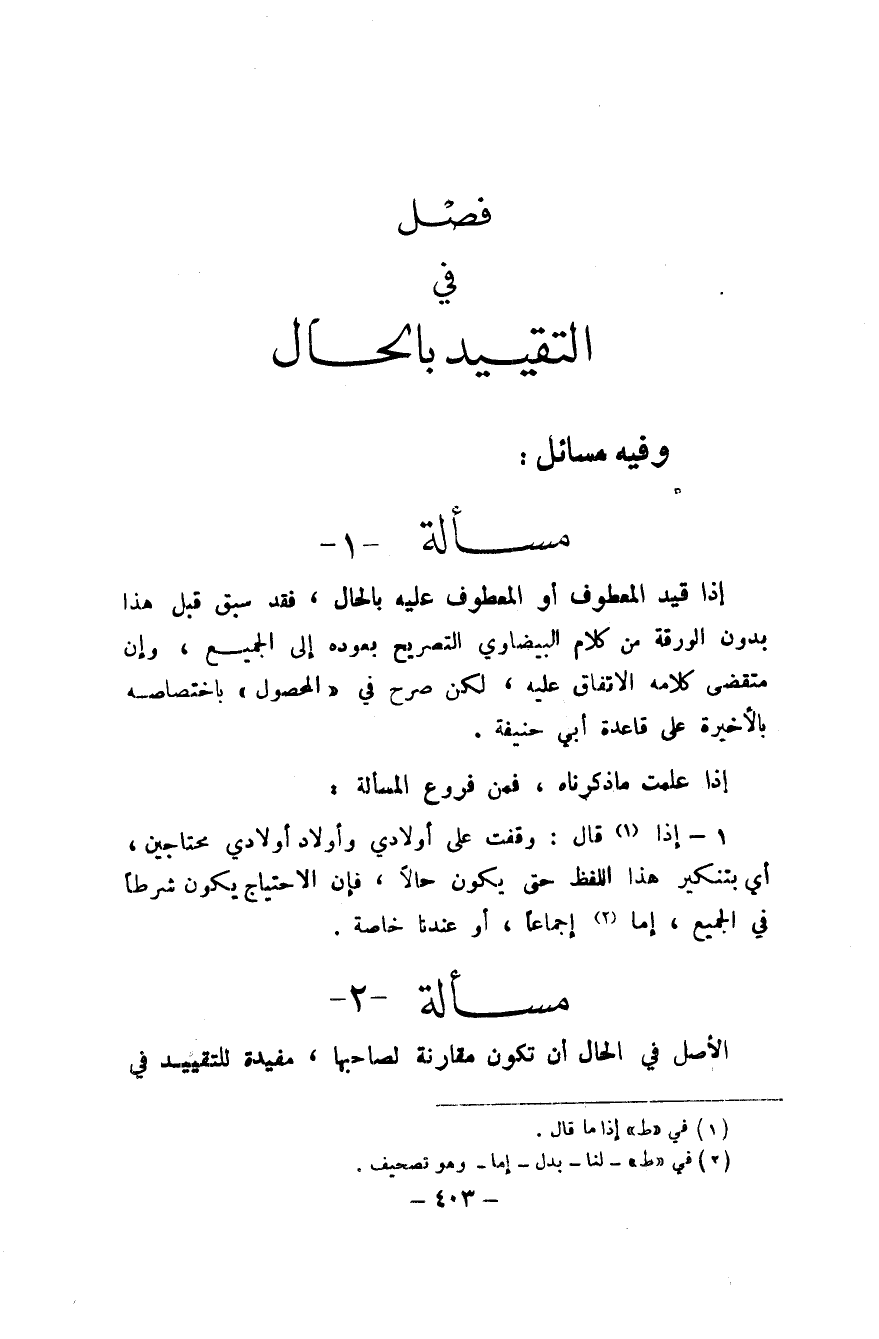 فصل
في
التقييد بالحال
وفيه مسائل :
مسألة -١-
إذا قيد المعطوف أو المعطوف عليه بالحال ، فقد سبق قبل هذا
بدون الورقة من كلام البيضاوي التصريح بعوده إلى الجميع ، وإن
متقضى كلامه الاتفاق عليه ، لكن صرح في « المحصول » باختصاصه
بالأخيرة على قاعدة أبي حنيفة .
إذا علمت ماذكرناه ، فمن فروع المسألة :
١ – إذا (١) قال : وقفت على أولادي وأولاد أولادي محتاجين ،
أي بتنكير هذا اللفظ حتى يكون حالاً ، فإن الاحتياج يكون شرطاً
في الجميع ، إما (٢) إجماعاً ، أو عندنا خاصة .
مسألة -٢-
الأصل في الحال أن تكون مقارنة لصاحبها ، مفيدة للتقييد في
(١) في «ط» إذا ما قال .
(٢) في «ط» – لنا – بدل – إما – وهو تصحيف .
– ٤٠٣ –